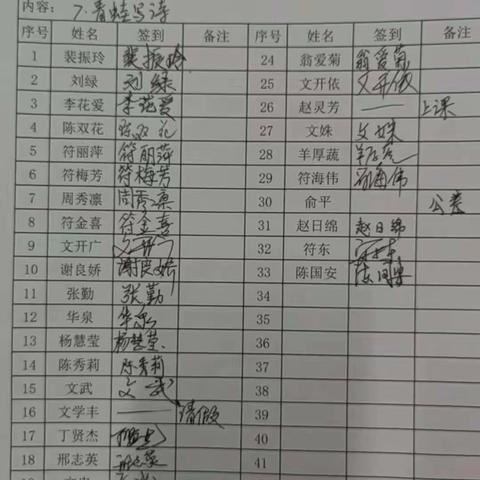 内容： 7.青蛙写诗
序号 姓名 签到 备注 序号 姓名 签到 备注
1 裴振玲 裴振玲 24 翁爱菊 翁爱菊
2 刘绿 刘绿 25 文开依 文开依
3 李花爱 李花爱 26 赵灵芳 — 上课
4 陈双花 陈双花 27 文姝 文姝
5 符丽萍 符丽萍 28 羊厚蔬
6 符梅芳 符梅芳 29 符海伟 符海伟
7 周秀凛 周秀凛 30 俞平 公差
8 符金喜 符金喜 31 赵日绵 赵日绵
9 文开广 文开广 32 符东
10 谢良娇 谢良娇 33 陈国安
11 张勤 张勤 34
12 华泉 华泉 35
13 杨慧莹 杨慧莹 36
14 陈秀莉 陈秀莉 37
15 文武 文武 38
16 文学丰 — 请假 39
17 丁贤杰 40
18 邢志英 邢志英 41